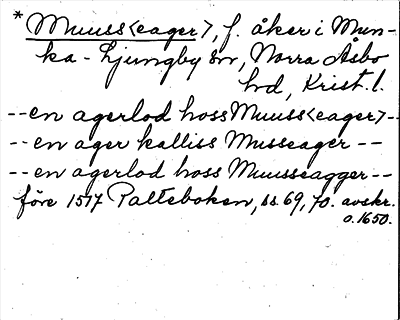 * Muuss<eager>, f. åker i Mun-
ka-Ljungby sn, Norra Åsbo
hd, Krist. l.
--en agerlod hoss Muuss<eager>--
--en ager kalliss Musseager--
--en agerlod hoss Muusseagger--
före 1517 Palteboken, ss 69, 70. avskr.
o. 1650.